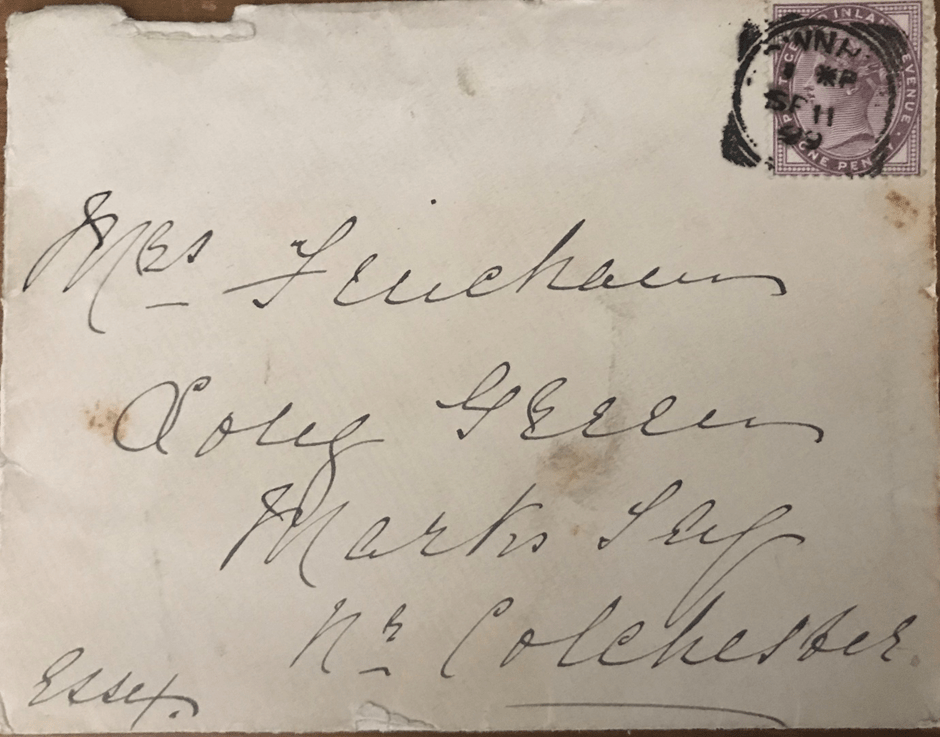 INLAND REVENUE
ONE PENNY
SE 11
99
Mrs Fincham
Long Green
Marks Tey
Nr Colchester
Essex.